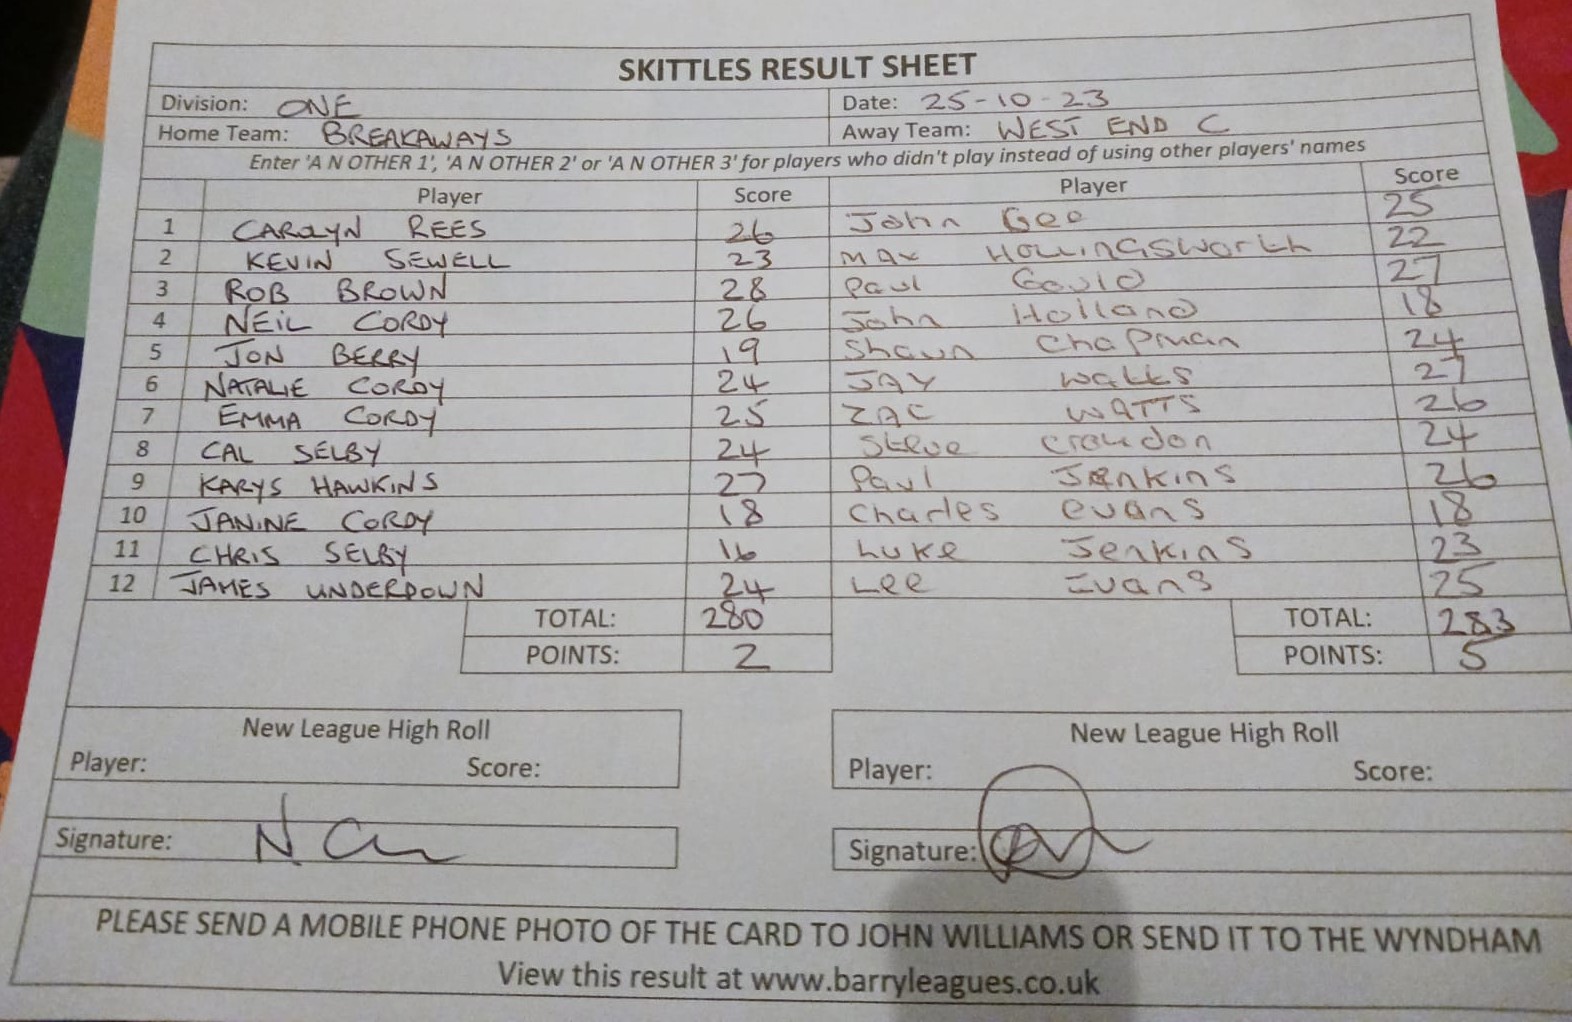 SKITTLES RESULT SHEET
Division: ONE Date: 25-10-23
Home Team: BREAKAWAYS Away Team: WEST END C
Enter 'A N OTHER 1', 'A N OTHER 2' or 'A N OTHER 3' for players who didn't play instead of using other players' names
Player Score Player Score
1 CAROLYN REES 26 John Gee 25
2 KEVIN SEWELL 23 Max Hollingsworth 22
3 ROB BROWN 28 Paul Gould 27
4 NEIL CORDY 26 John Holland 18
5 JON BERRY 19 Shaun Chapman 24
6 NATALIE CORDY 24 JAY Watts 27
7 EMMA CORDY 25 ZAC WATTS 26
8 CAL SELBY 24 Steve 24
9 KARYS HAWKINS 27 Paul Jenkins 26
10 JANINE CORDY 18 Charles Evans 18
11 CHRIS SELBY 16 Luke Jenkins 23
12 JAMES UNDERDOWN 24 Lee Evans 25
TOTAL: 280 TOTAL: 283
POINTS: 2 POINTS: 5
New League High Roll New League High Roll
Player: Score: Player: Score:
Signature: Signature:
PLEASE SEND A MOBILE PHONE PHOTO OF THE CARD TO JOHN WILLIAMS OR SEND IT TO THE WYNDHAM
View this result at www.barryleagues.co.uk